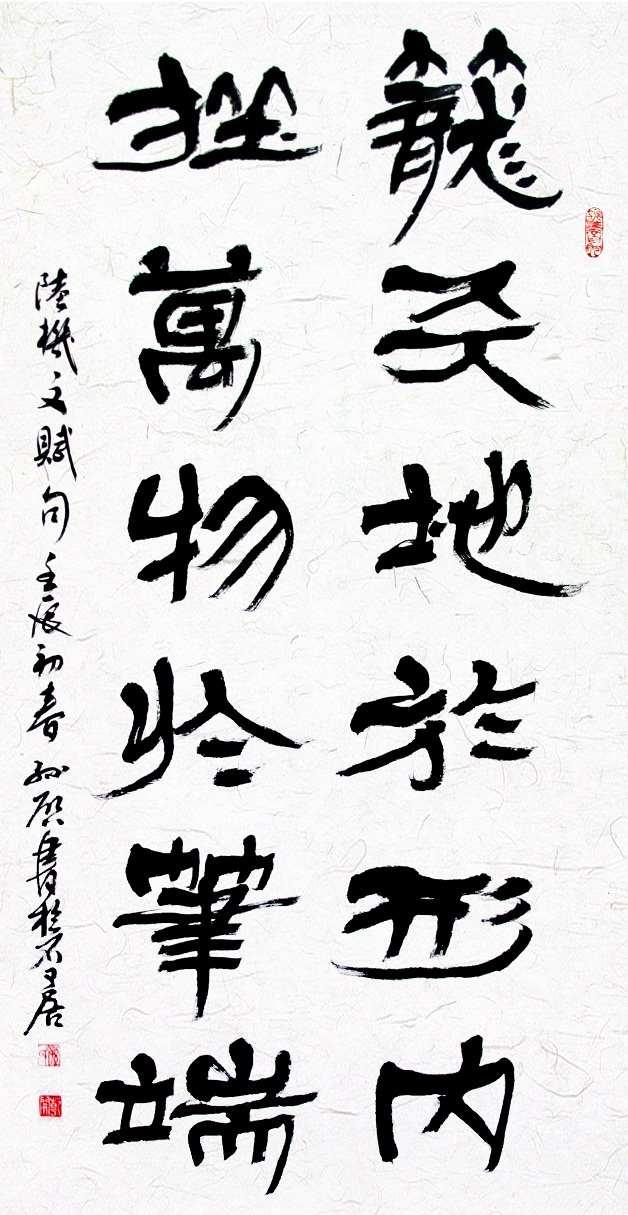 籠天地於形内
挫萬物於筆端
陸機文賦句壬辰初春孙启書於不居